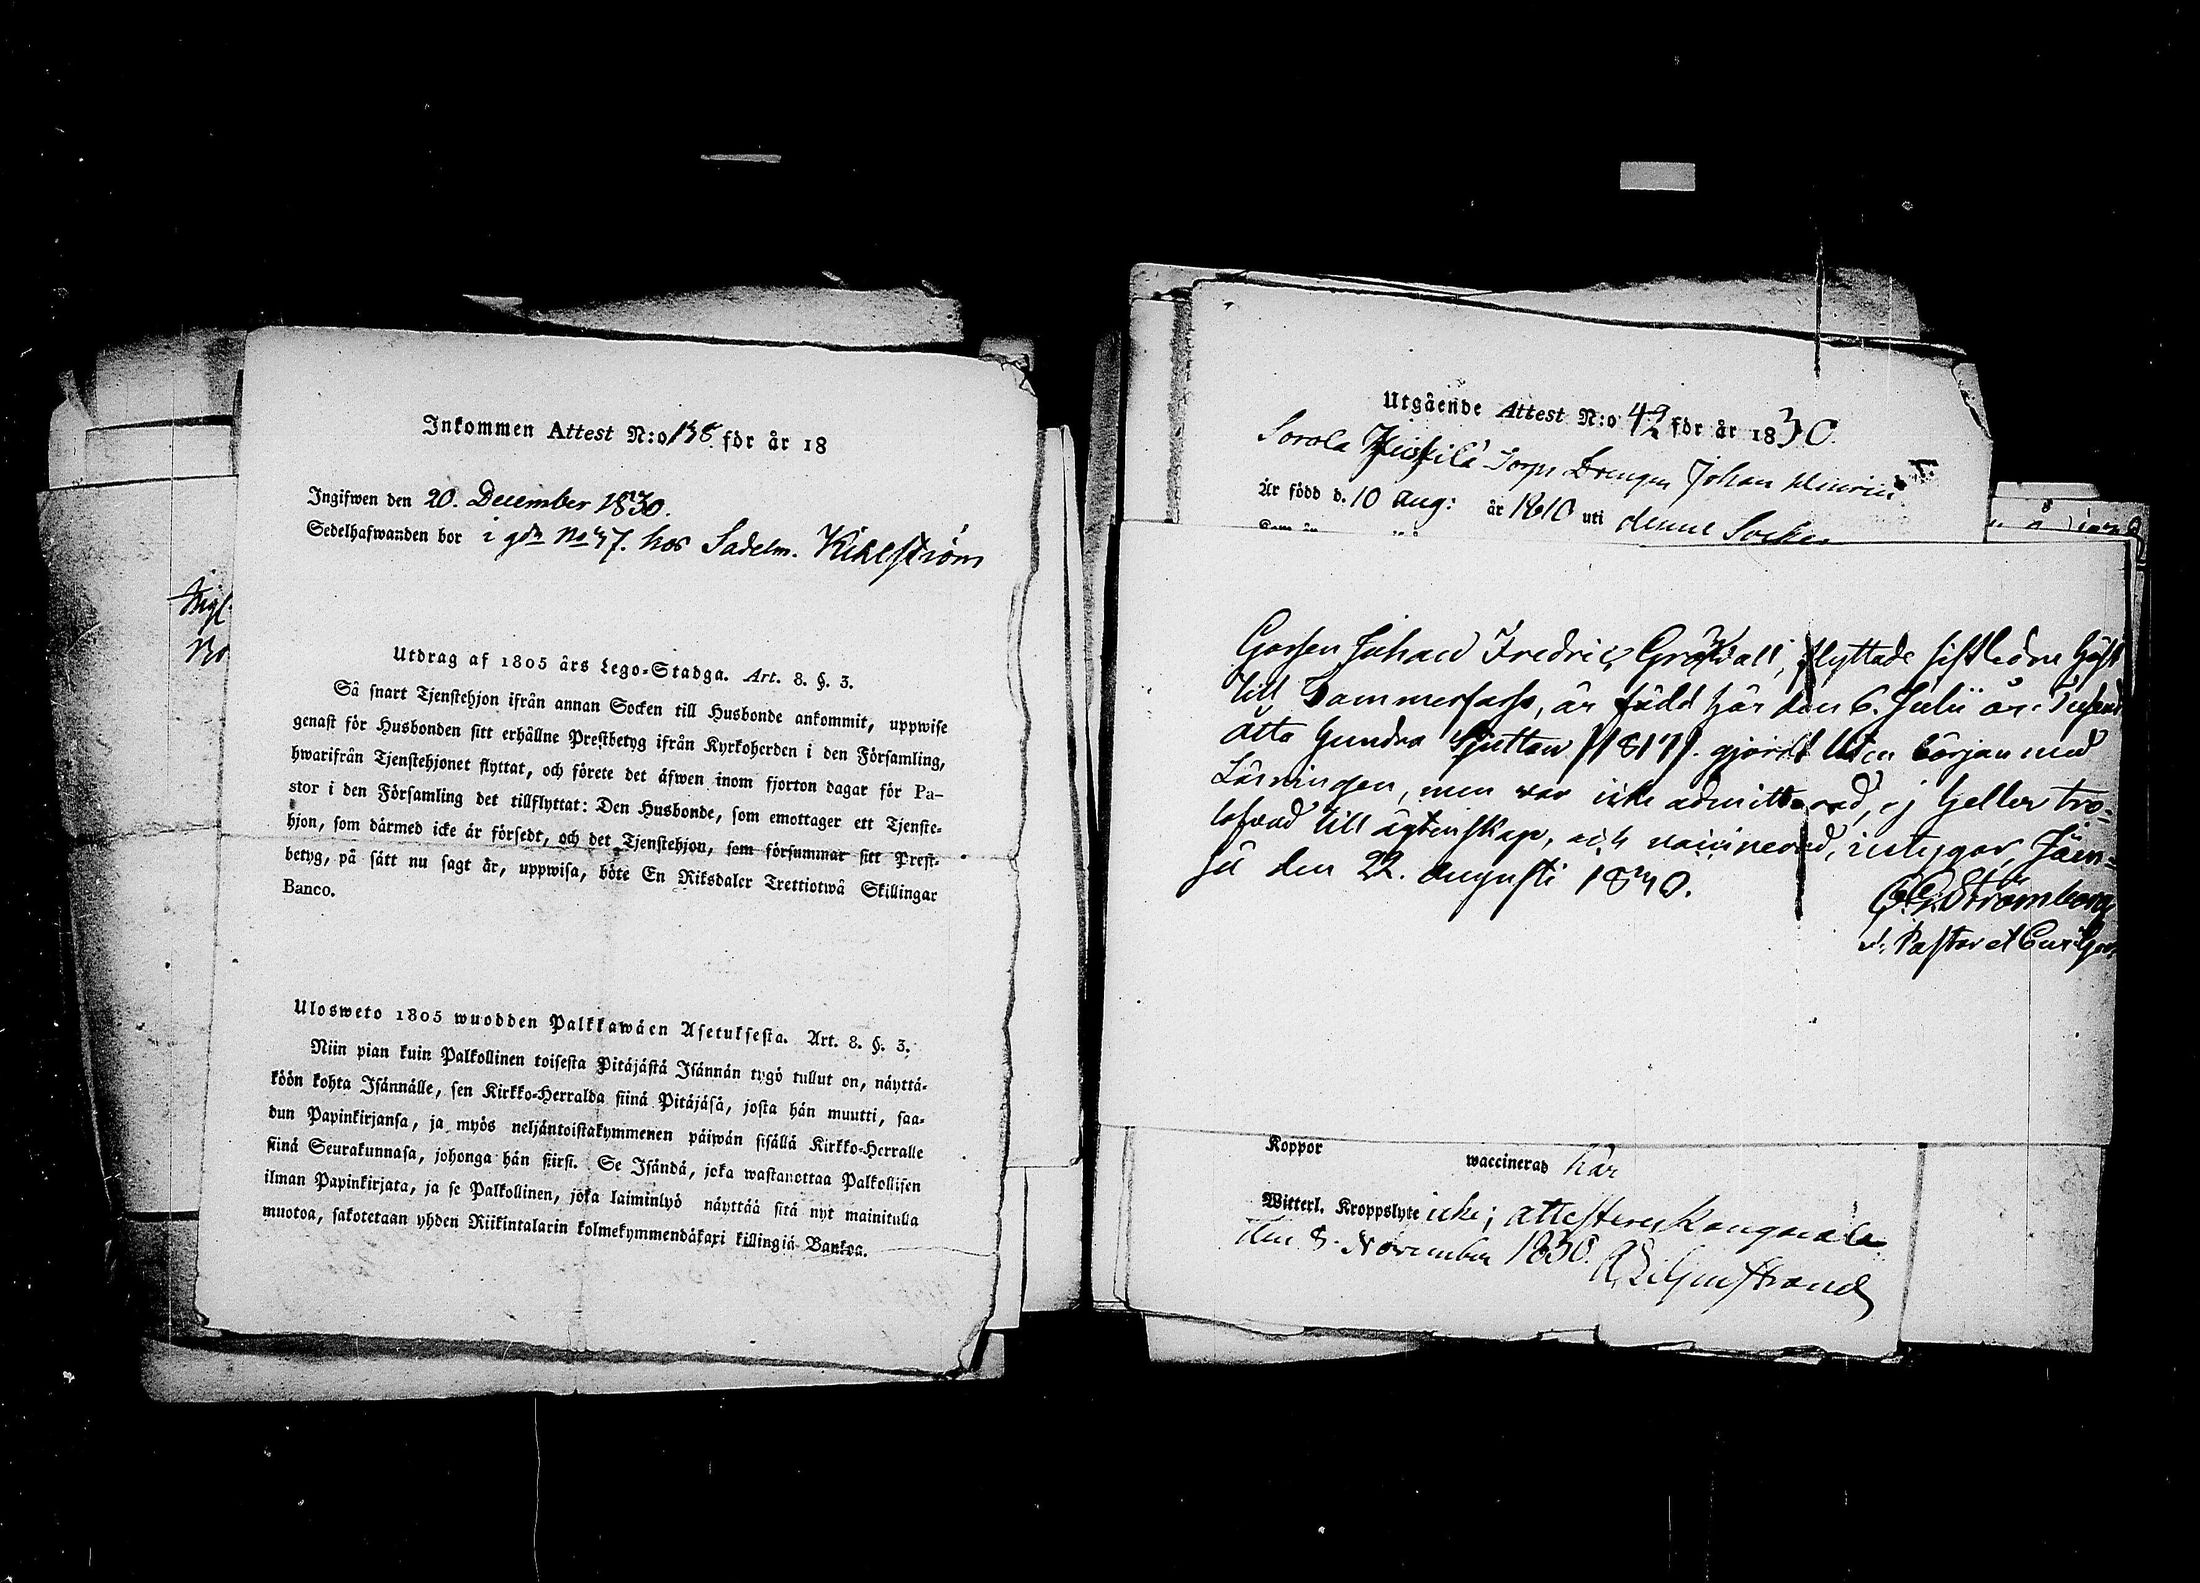 Inkommen Attest N:o 138. för år 18
Ingifwen den 20. December 1830.
Sedelhafwanden bor i gdn No 47. hos Sadelm. Kihlström
Utdrag af 1805 års Lego-Stadga. Art. 8. §. 3.
Så snart Tjenstehjon ifrån annan Socken till Husbonde ankommit, uppwise
genast för Husbonden sitt erhållne Prestbetyg ifrån Kyrkoherden i den Församling,
hwarifrån Tjenstehjonet flyttat, och förete det äfwen inom fjorton dagar för Pa-
stor i den Församling det tillflyttat: Den Husbonde, som emottager ett Tjenste-
hjon, som därmed icke är försedt, och det Tjenstehjon, som försummar sitt Prest-
betyg, på sätt nu sagt är, uppwisa, böte En Riksdaler Trettiotwå Skillingar
Banco.
Ulosweto 1805 wuodden Palkkawäen Asetuksesta. Art. 8. §. 3.
Niin pian kuin Palkollinen toisesta Pitäjästä Isännän tygö tullut on, näyttä-
köön kohta Isännälle, sen Kirkko-Herralda siinä Pitäjäsä, josta hän muutti, saa-
dun Papinkirjansa, ja myös neljäntoistakymmenen päiwän sisällä Kirkko-Herralle
siinä Seurakunnasa, johonga hän siirsi. Se Isändä, joka wastanottaa Palkollisen
ilman Papinkirjata, ja se Palkollinen, joka laiminlyö näyttää sitä nyt mainitulla
muotoa, sakotetaan yhden Riikintalarin kolmekymmendäkaxi killingiä Bankoa.
Utgående Attest N:o 42 för år 1830.
Sorola Heikkilä Torps Drengen Johan Henrici
Är född d. 10 Aug: år 1810 uti denne Socken
Gossen Johan Fredric Gröndall, flyttade sistledne höst
till Tammerfors, är född här den 6. Julii år: Tusend
åtta hundra Sjuttan /1817/. gjordt liten början med
Läsningen, men var icke admitterad, ej heller tro-
lofvad till ägtenskap, och vaccinerad, intygar, Jäm-
sä den 22. Augusti 1830.
Strömborg
v. Pastor et
Koppor waccinerad här
Witterl. Kroppslyte icke; attesteres Kangasala
den 8. November 1830.